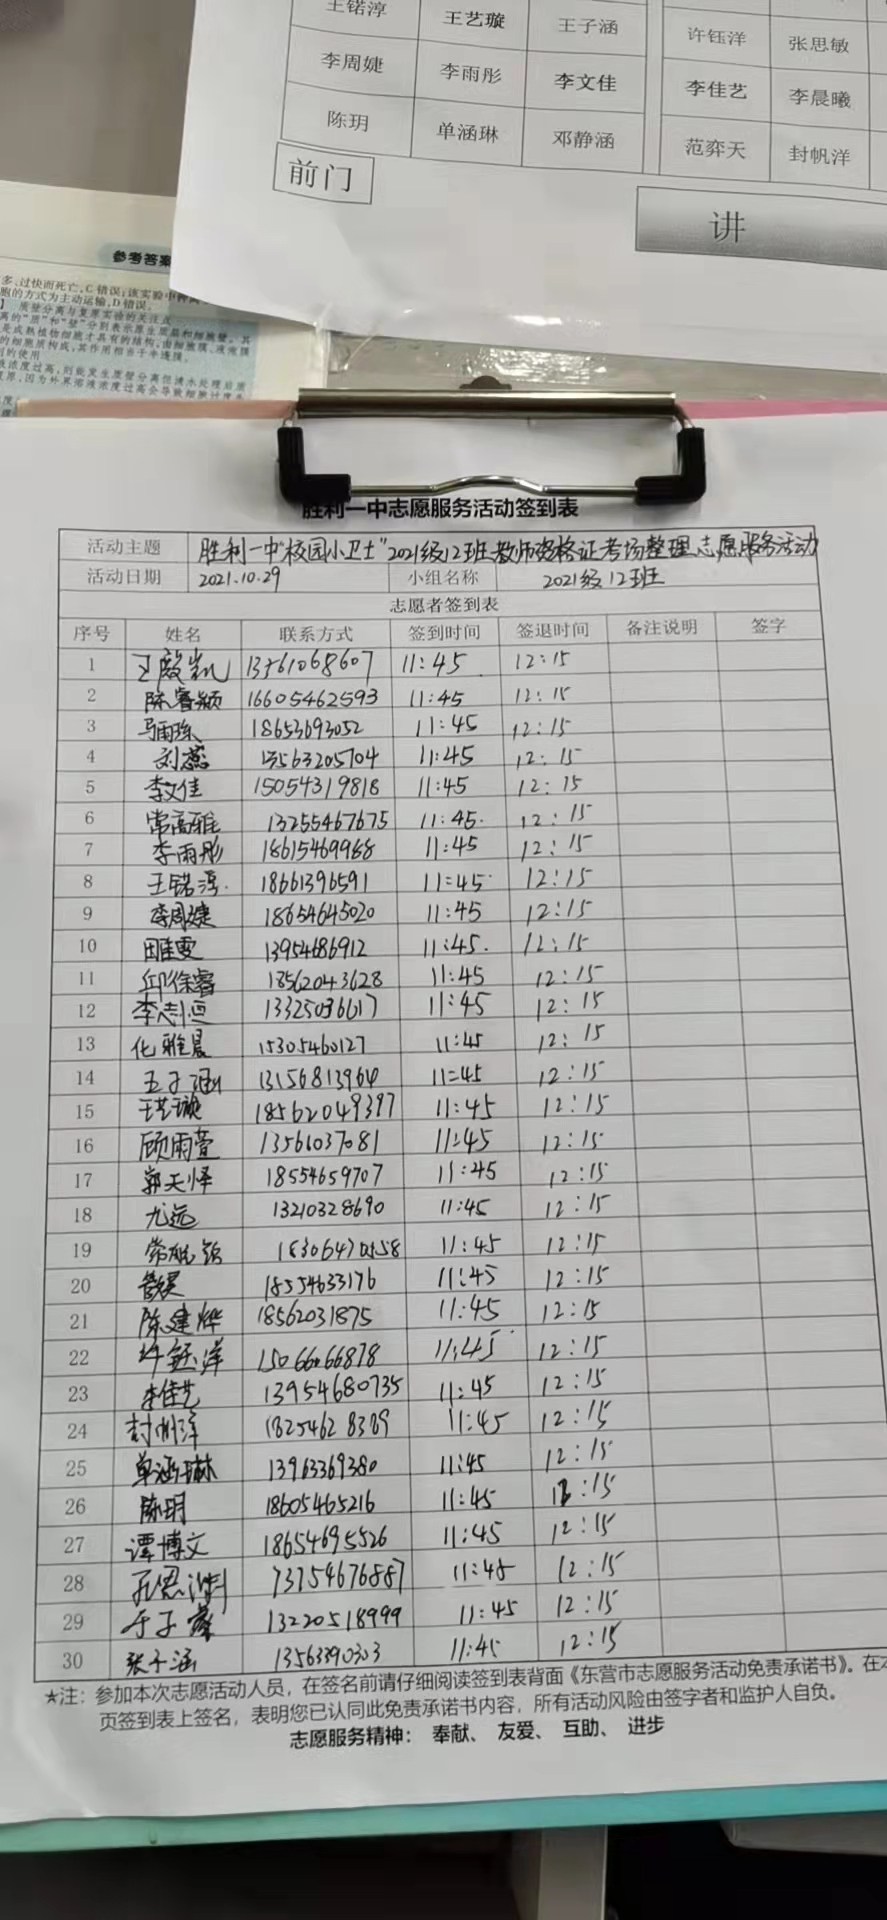 王锘淳 王艺璇 王子涵 许钰洋 张思敏
李周婕 李雨彤 李文佳 李佳艺 李晨曦
陈玥 单涵琳 邓静涵 范弈天 封帆洋
前门
讲
参考答案
多、过快而死亡,C错误;该实验中
胞的方式为主动运输,D错误。
质壁分离与复原实验的关注点
离的"质"和"壁"分别表示原生质层和细胞壁。其
是成熟植物细胞才具有的结构,由细胞膜、液泡膜
的细胞质构成,其作用相当于半透膜。
的使用
液浓度过高,则能发生质壁分离但清水处理后质
复原,因为外界溶液浓度过高会导致细胞过度失
胜利一中志愿服务活动签到表
活动主题 胜利一中"校园小卫士"2021级12班教师资格证考场整理志愿服务活动
活动日期 2021.10.29 小组名称 2021级12班
志愿者签到表
序号 姓名 联系方式 签到时间 签退时间 备注说明 签字
1 王殿凯 13561068607 11:45 12:15
2 陈睿颖 16605462593 11:45 12:15
3 马雨琢 18653693052 11:45 12:15
4 刘蕊 13563205704 11:45 12:15
5 李文佳 15054319818 11:45 12:15
6 常高雅 13255467675 11:45 12:15
7 李雨彤 18615469988 11:45 12:15
8 王锘淳 18661396591 11:45 12:15
9 李周婕 18654645020 11:45 12:15
10 田雅雯 13954686912 11:45 12:15
11 邱徐睿 18562043628 11:45 12:15
12 李志恒 13325036617 11:45 12:15
13 化雅晨 15305460127 11:45 12:15
14 王子涵 13156813964 11:45 12:15
15 王艺璇 18562049397 11:45 12:15
16 顾雨萱 13566037081 11:45 12:15
17 郭天怿 18554659707 11:45 12:15
18 尤远 13210328690 11:45 12:15
19 11:45 12:15
20 18554633176 11:45 12:15
21 陈建烨 18562031875 11:45 12:15
22 许钰洋 15066066878 11:45 12:15
23 李佳艺 13954680735 11:45 12:15
24 封帆洋 18254628389 11:45 12:15
25 单涵琳 13963369380 11:45 12:15
26 陈玥 18605465216 11:45 12:15
27 谭博文 18654695526 11:45 12:15
28 孔恩澍 13754676887 11:45 12:15
29 于子 13220518999 11:45 12:15
30 张子涵 13563390303 11:45 12:15
★注:参加本次志愿活动人员,在签名前请仔细阅读签到表背面《东营市志愿服务活动免责承诺书》。在本
页签到表上签名,表明您已认同此免责承诺书内容,所有活动风险由签字者和监护人自负。
志愿服务精神: 奉献、 友爱、 互助、 进步